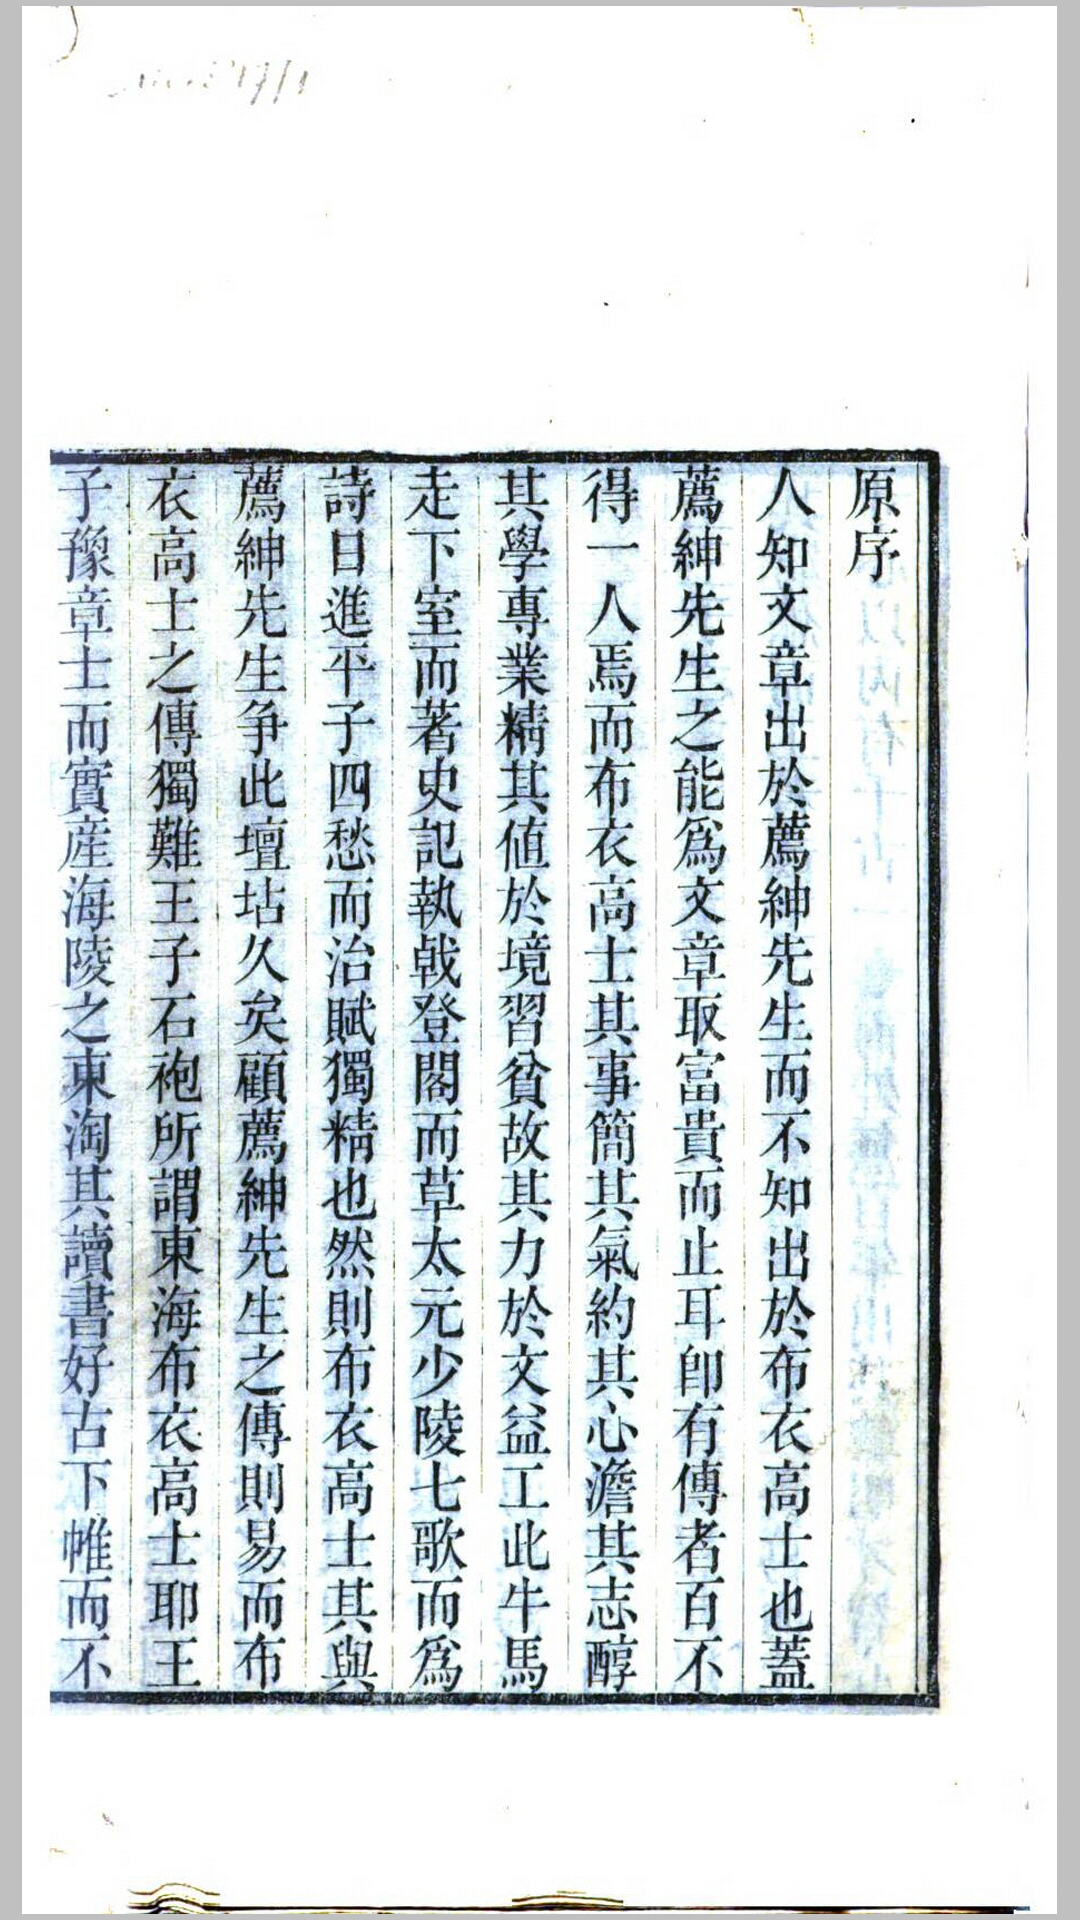 原序
人知文章出於薦紳先生而不知出於布衣高士也蓋
薦紳先生之能爲文章取富貴而止耳卽有傳者百不
得一人焉而布衣高士其事簡其氣約其心澹其志醇
其學專業精其値於境習貧故其力於文益工此牛馬
走下室而著史記執戟登閣而草太元少陵七歌而爲
詩日進平子四愁而治賦獨精也然則布衣高士其與
薦紳先生争此壇坫久矣顧薦紳先生之傳則易而布
衣高士之傳獨難王子石袍所謂東海布衣高士耶王
子豫章士而實産海陵之東淘其讀書好古下帷而不